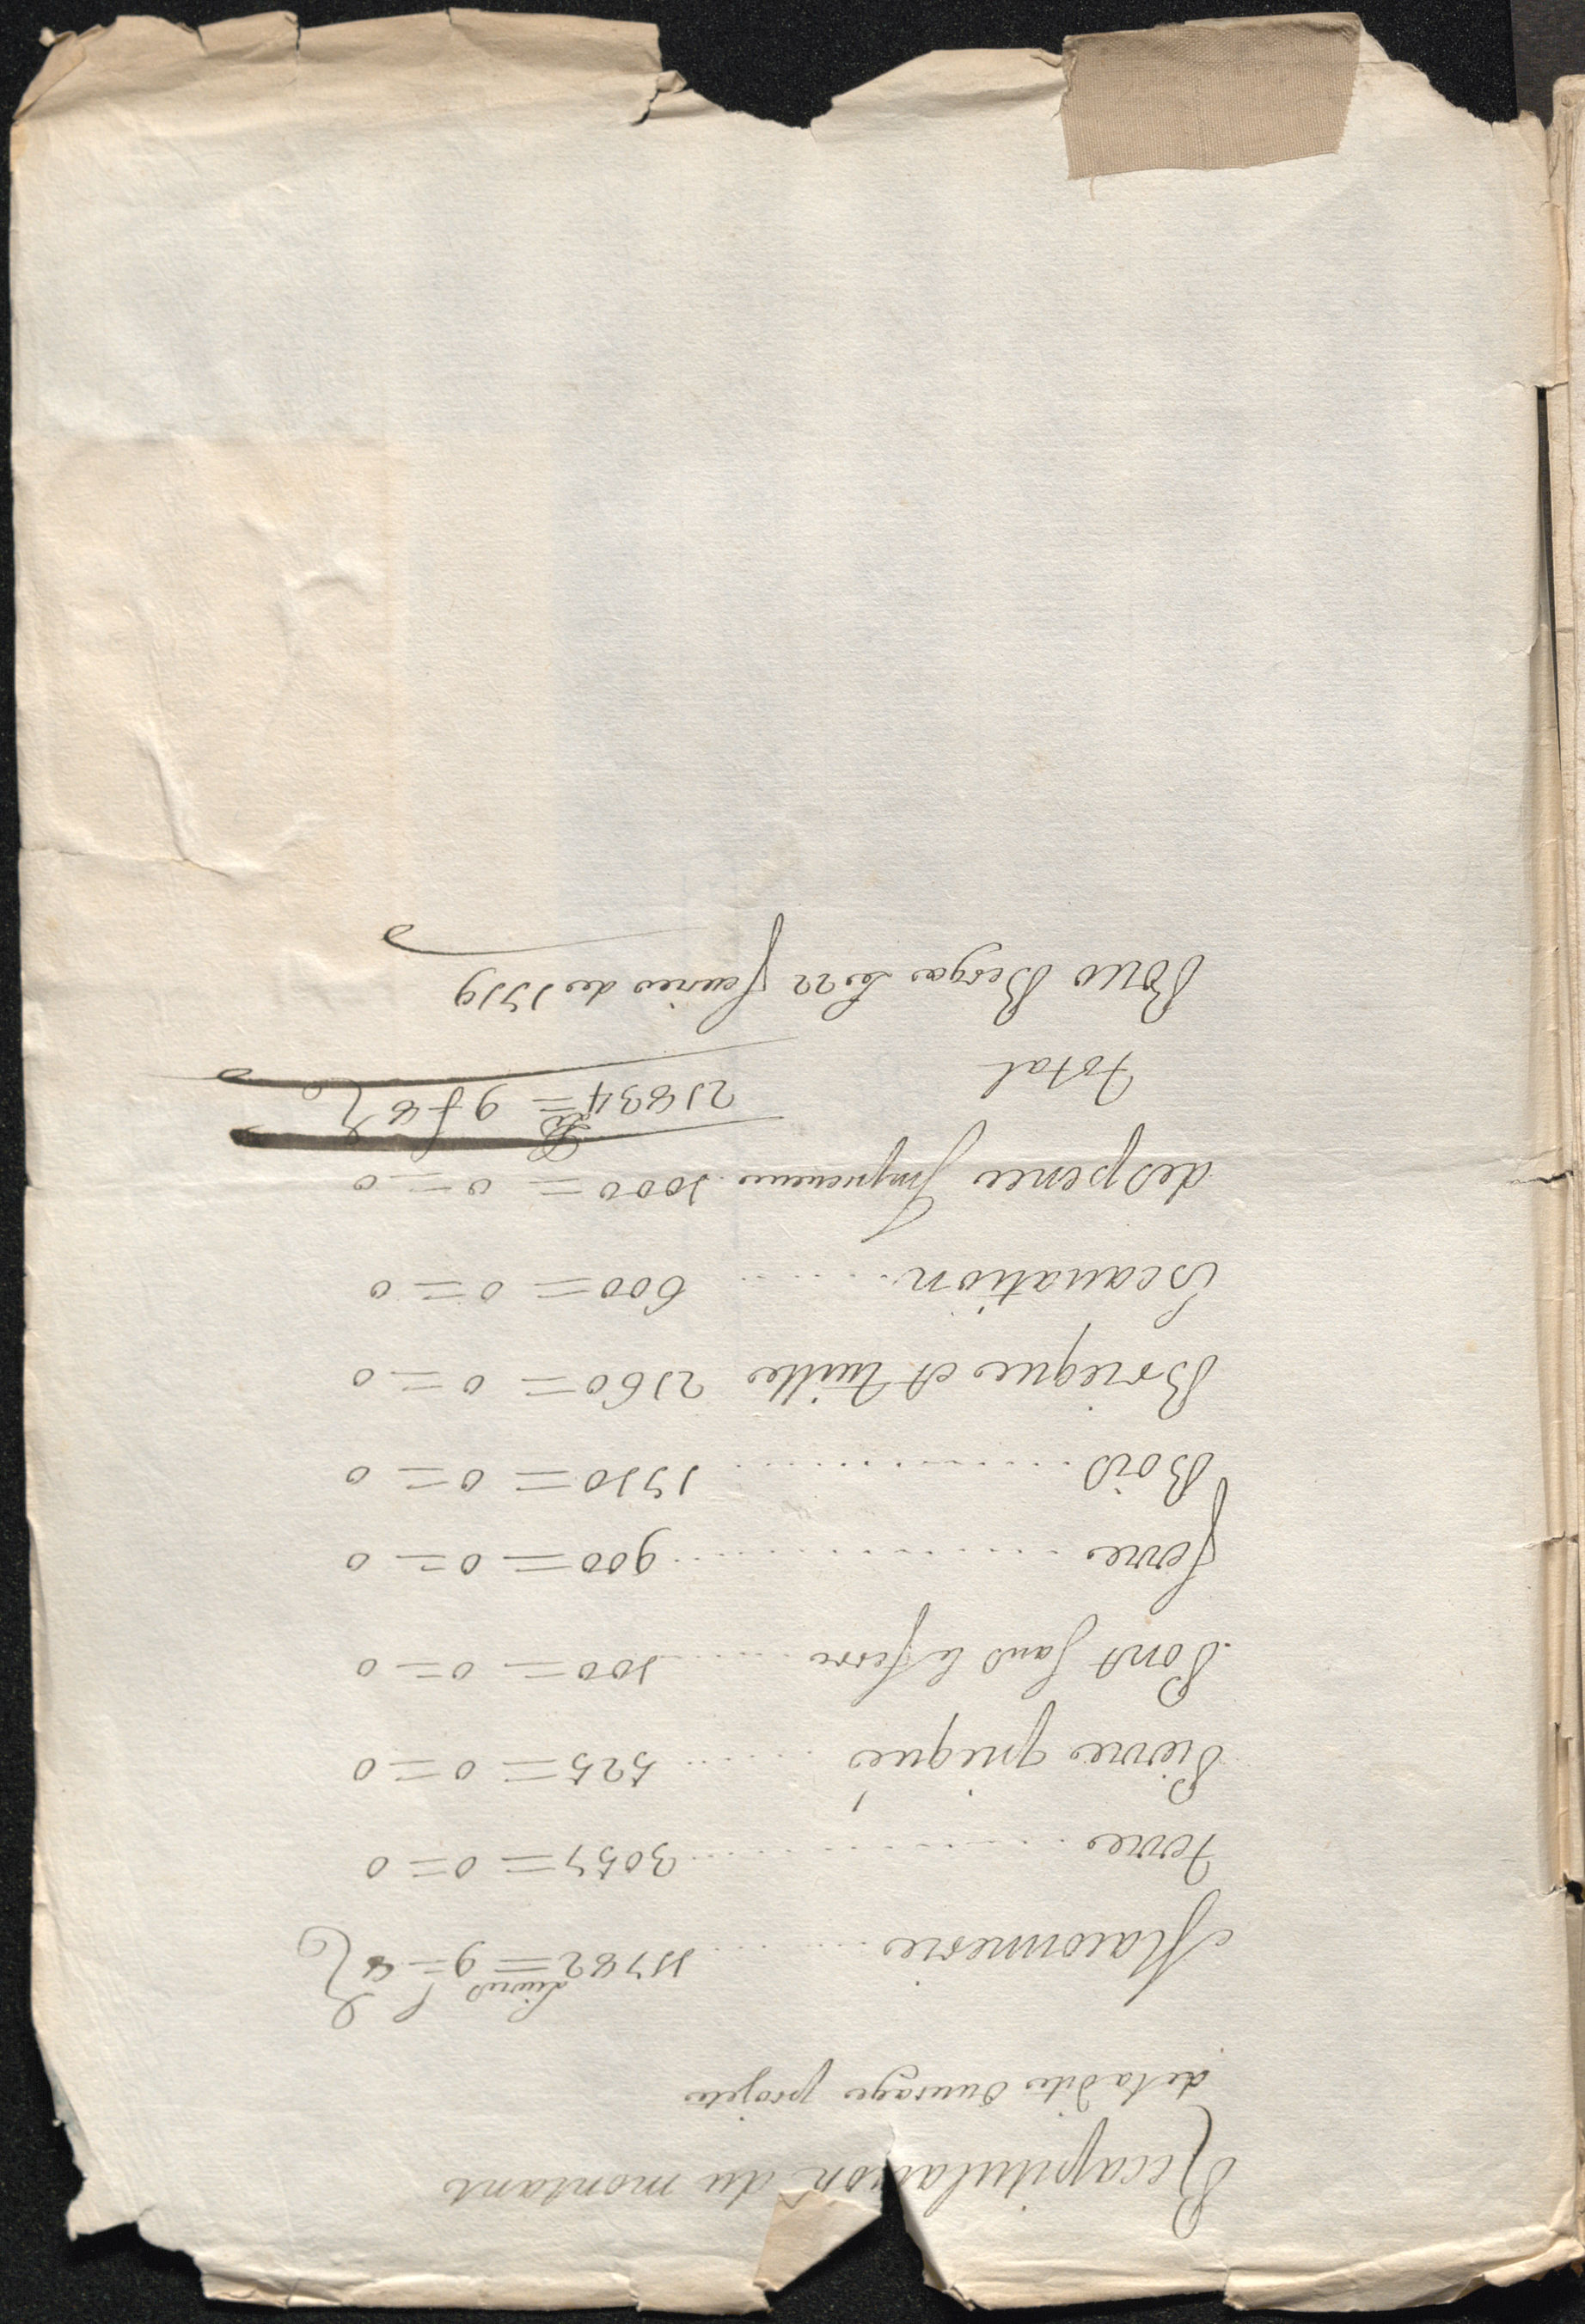 Recapitulation du montant
de la dite Ouurage projete
Livres ſ ₰
Maconnerie ........ 11782 = 9 = 8
Terre ........ 3057 = 0 = 0
Pierre picqué ........ 525 = 0 = 0
Pont sans le ferre ........ 100 = 0 = 0
ferre ........ 900 = 0 = 0
Bois ........ 1710 = 0 = 0
Bricque et tuille 2160 = 0 = 0
Escauation ........ 600 = 0 = 0
despence Impreueue 1000 = 0 = 0
Total 21834 = 9 ſ 8 ₰
Le 22 feurier de 1719